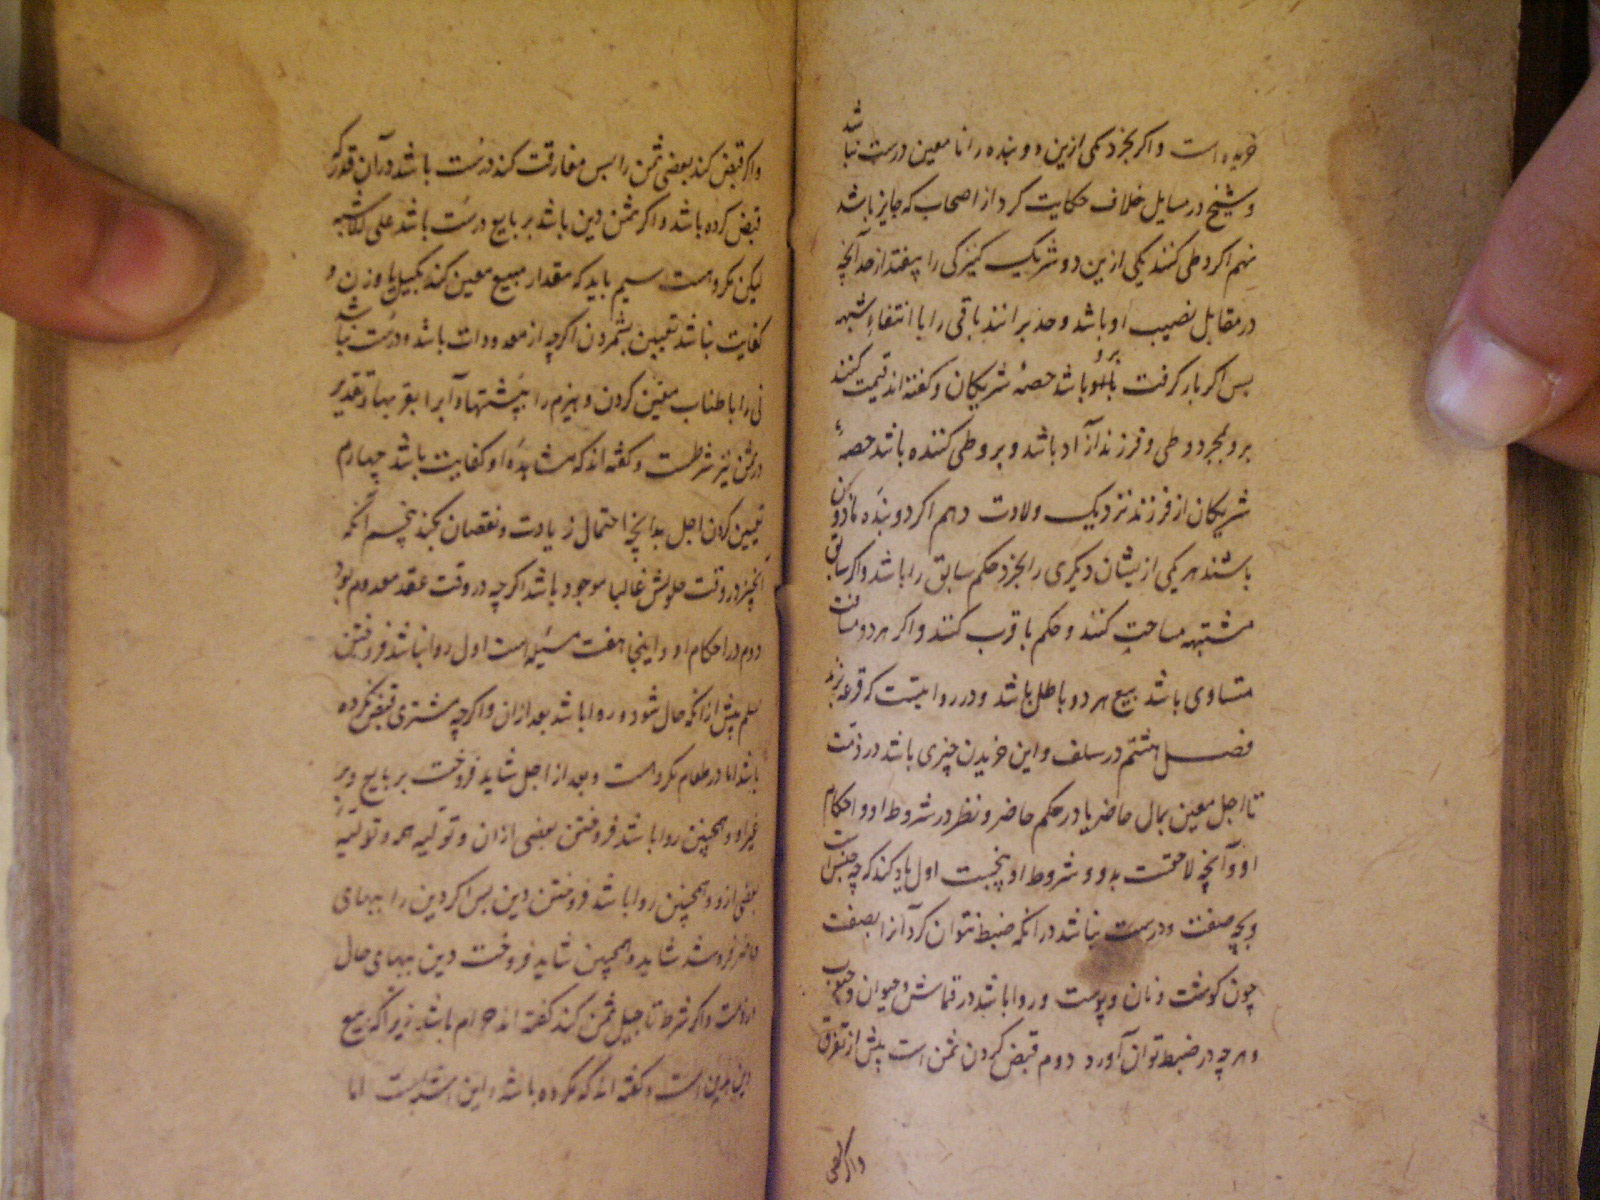 خریده است و اکر بخرد یکی ازین دو بنده را نا معین درست نباشد
و شیخ در مسایل خلاف حکایت کرد از اصحاب که جایز باشد
نهم اکر وطی کنند یکی ازین دو شریک کنیزکی را بیفتد از حد آنچه
در مقابل نصیب او باشد و حد برانند باقی را با انتفاء شبهه
بس اکر بار کرفت باشد حصهٔ شریکان و کفته اند قیمت کنند
برو بمجرد وطی و فرزند آزاد باشد و بر وطی کننده باشد حصهٔ
شریکان از فرزند نزدیک ولادت دهم اکر دو بندهٔ ماذون
باشند هر یکی ازیشان دیکری را بخرد حکم سابق را باشد و اکر سابق
مشتبه مساحت کنند و حکم باقرب کنند و اکر هر دو مسافت
متساوی باشد بیع هر دو باطل باشد و در روایتست که قرعه زنند
فصل هشتم در سلف و این خریدن چیزی باشد در ذمت
تا اجل معین بمال حاضر یا در حکم حاضر و نظر در شروط او و احکام
او و آنچه لاحقست بدو و شروط او پنجست اول یاد کند که چه جنس است
و بچه صفت و درست نباشد در انکه ضبط نتوان کرد آنرا بصفت
چون کوشت و نان و پوست و روا باشد در قماش و حیوان و حبوب
و هر چه در ضبط توان آورد دوم قبض کردن ثمن است پیش از تفرق
و اکر قبض کند بعضی ثمن را بس مفارقت کند درست باشد در آن قدر که
قبض کرده باشد و اکر ثمن دین باشد بر بایع درست باشد علی الاشبه
لیکن مکروهست سیم باید که مقدار مبیع معین کند بکیل یا وزن و
کفایت نباشد تعیین بشمردن اکرچه از معدودات باشد و درست نباشد
نی را باطناب معین کردن و هیزم را بپشتها و آب را بقربها و تقدیر
در ثمن نیز شرطست و کفته اند که مشاهدهٔ او کفایت باشد چهارم
تعیین کردن اجل بدانچه احتمال زیادت و نقصان نکند پنجم آنکه
آنچیز در وقت حلولش غالبا موجود باشد اکرچه در وقت عقد معدوم بود
دوم در احکام او و اینجا هفت مسئله است اول روا نباشد فروختن
سلم پیش از آنکه حال شود و روا باشد بعد ازان و اکرچه مشتری قبض نکرده
باشد اما در طعام مکروهست و بعد از اجل شاید فروخت بر بایع و بر
غیر او و همچنین روا باشد فروختن بعضی ازان و تولیه همه و تولیهٔ
بعضی ازو و همچنین روا باشد فروختن دین بس اکر دین را ببهای
حاضر فروشد شاید و همچنین شاید فروخت دین ببهای حال
و اکر شرط تاجیل ثمن کند کفته اند حرام باشد زیرا که بیع
دین بدین است و کفته اند که مکروه باشد و این اشبهست اما